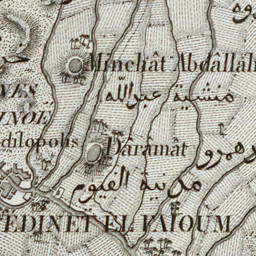 Minchât Abdâllah
منشية عبدالله
NES
INOE
dilopolis
Dârâmât
مدينة الفيوم
EDINET EL FAÏOUM